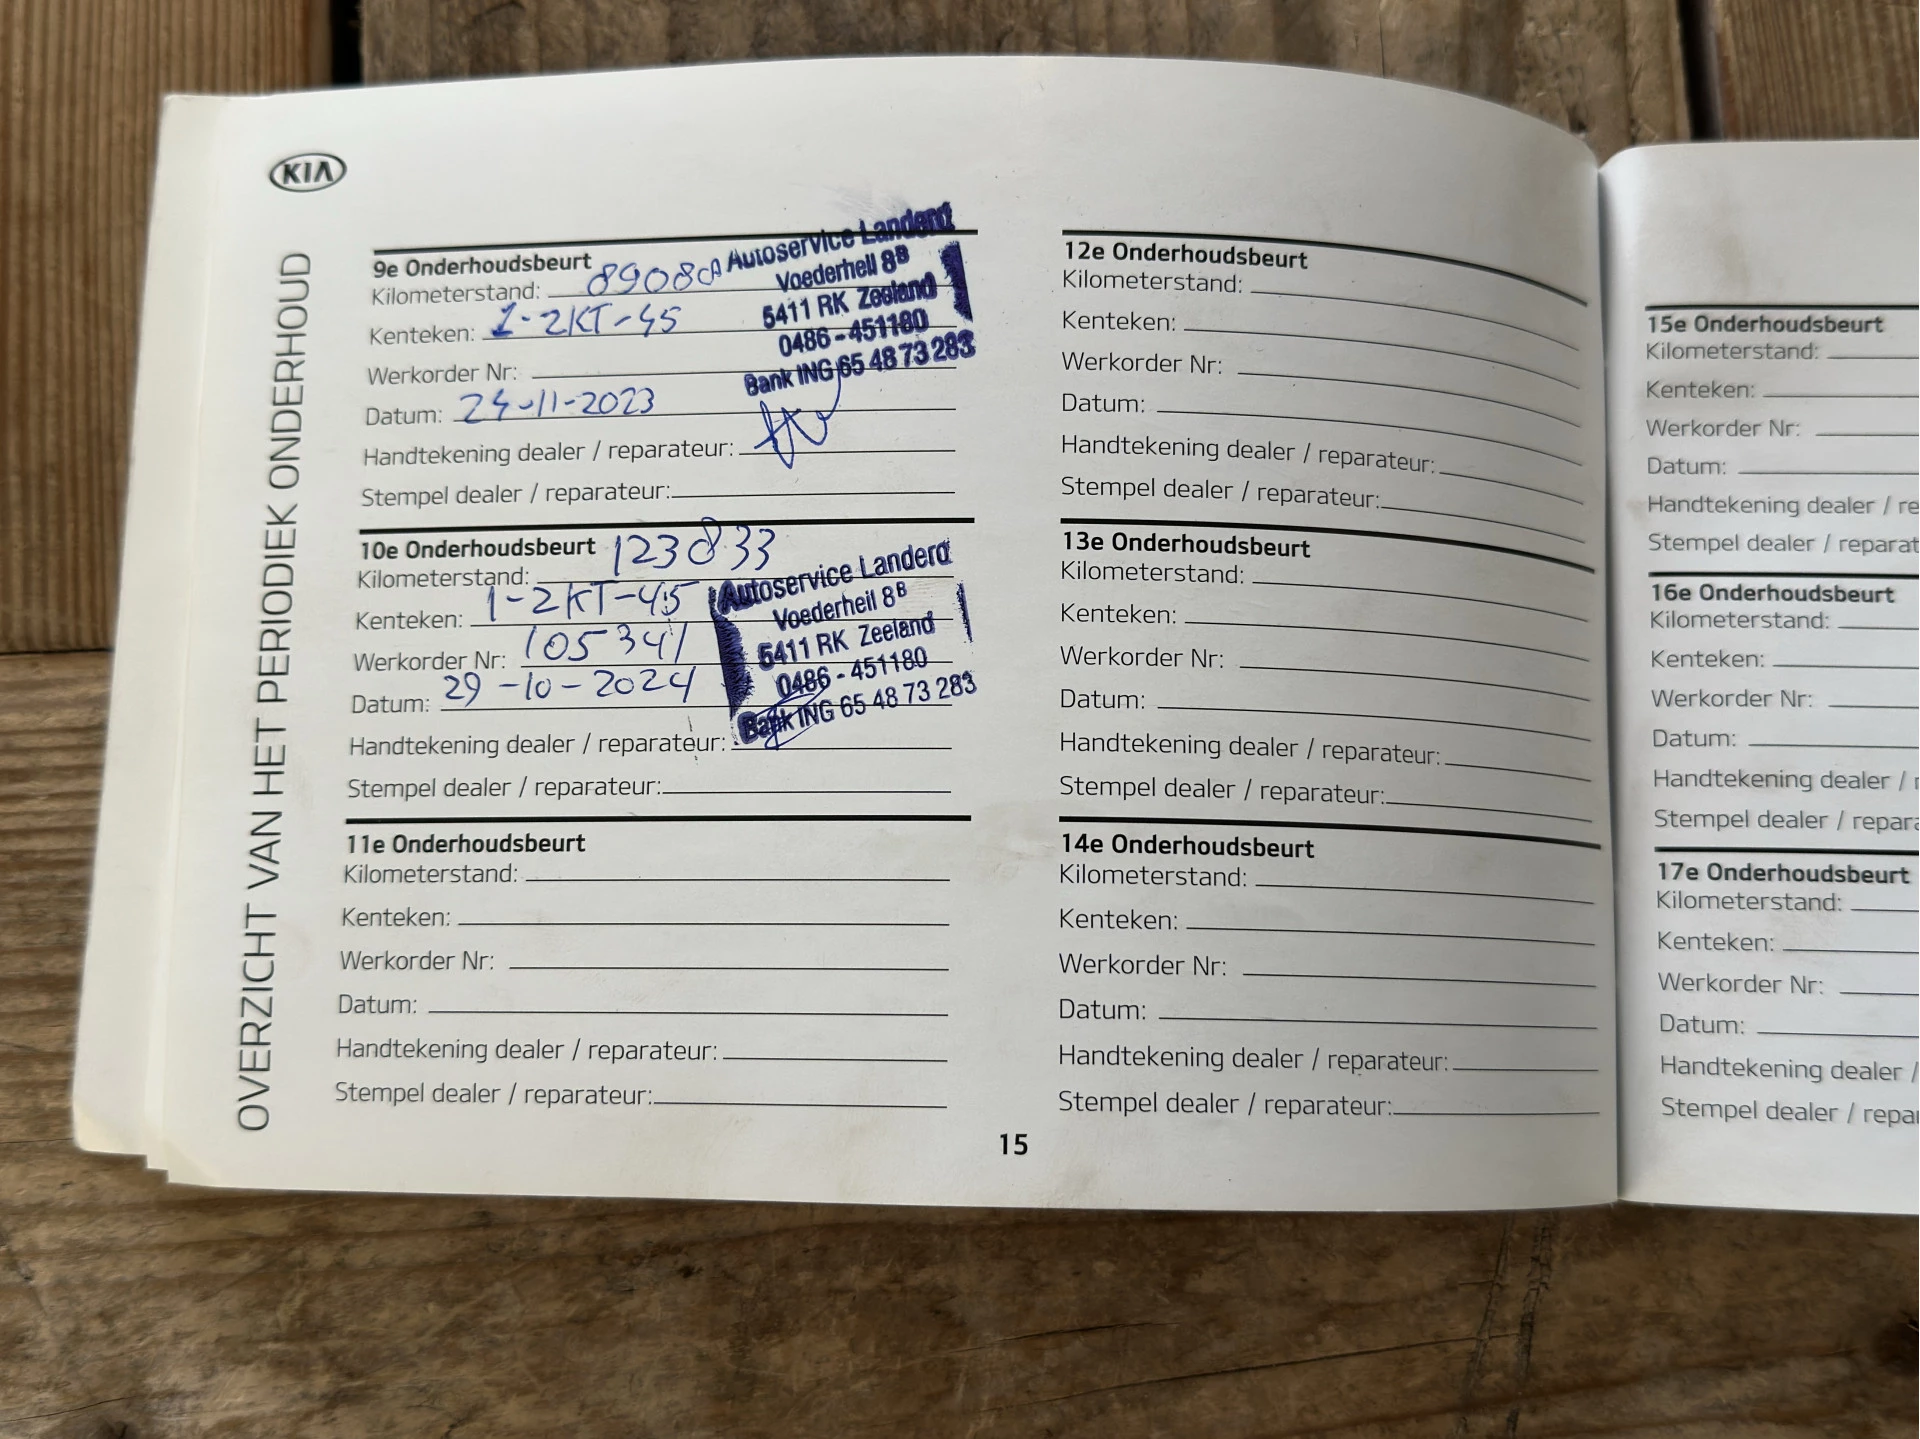 KIA
OVERZICHT VAN HET PERIODIEK ONDERHOUD
9e Onderhoudsbeurt
Kilometerstand: 89080
Kenteken: 1-2KT-45
Werkorder Nr:
Datum: 24-11-2023
Handtekening dealer / reparateur:
Stempel dealer / reparateur:
Autoservice Landerd
Voederheil 8B
5411 RK Zeeland
0486 - 451180
Bank ING 65 48 73 283
10e Onderhoudsbeurt
Kilometerstand: 123833
Kenteken: 1-2KT-45
Werkorder Nr: 105341
Datum: 29-10-2024
Handtekening dealer / reparateur:
Stempel dealer / reparateur:
Autoservice Landerd
Voederheil 8B
5411 RK Zeeland
0486 - 451180
Bank ING 65 48 73 283
11e Onderhoudsbeurt
Kilometerstand:
Kenteken:
Werkorder Nr:
Datum:
Handtekening dealer / reparateur:
Stempel dealer / reparateur:
12e Onderhoudsbeurt
Kilometerstand:
Kenteken:
Werkorder Nr:
Datum:
Handtekening dealer / reparateur:
Stempel dealer / reparateur:
13e Onderhoudsbeurt
Kilometerstand:
Kenteken:
Werkorder Nr:
Datum:
Handtekening dealer / reparateur:
Stempel dealer / reparateur:
14e Onderhoudsbeurt
Kilometerstand:
Kenteken:
Werkorder Nr:
Datum:
Handtekening dealer / reparateur:
Stempel dealer / reparateur:
15
15e Onderhoudsbeurt
Kilometerstand:
Kenteken:
Werkorder Nr:
Datum:
Handtekening dealer / re
Stempel dealer / reparat
16e Onderhoudsbeurt
Kilometerstand:
Kenteken:
Werkorder Nr:
Datum:
Handtekening dealer /
Stempel dealer / repara
17e Onderhoudsbeurt
Kilometerstand:
Kenteken:
Werkorder Nr:
Datum:
Handtekening dealer /
Stempel dealer / repar